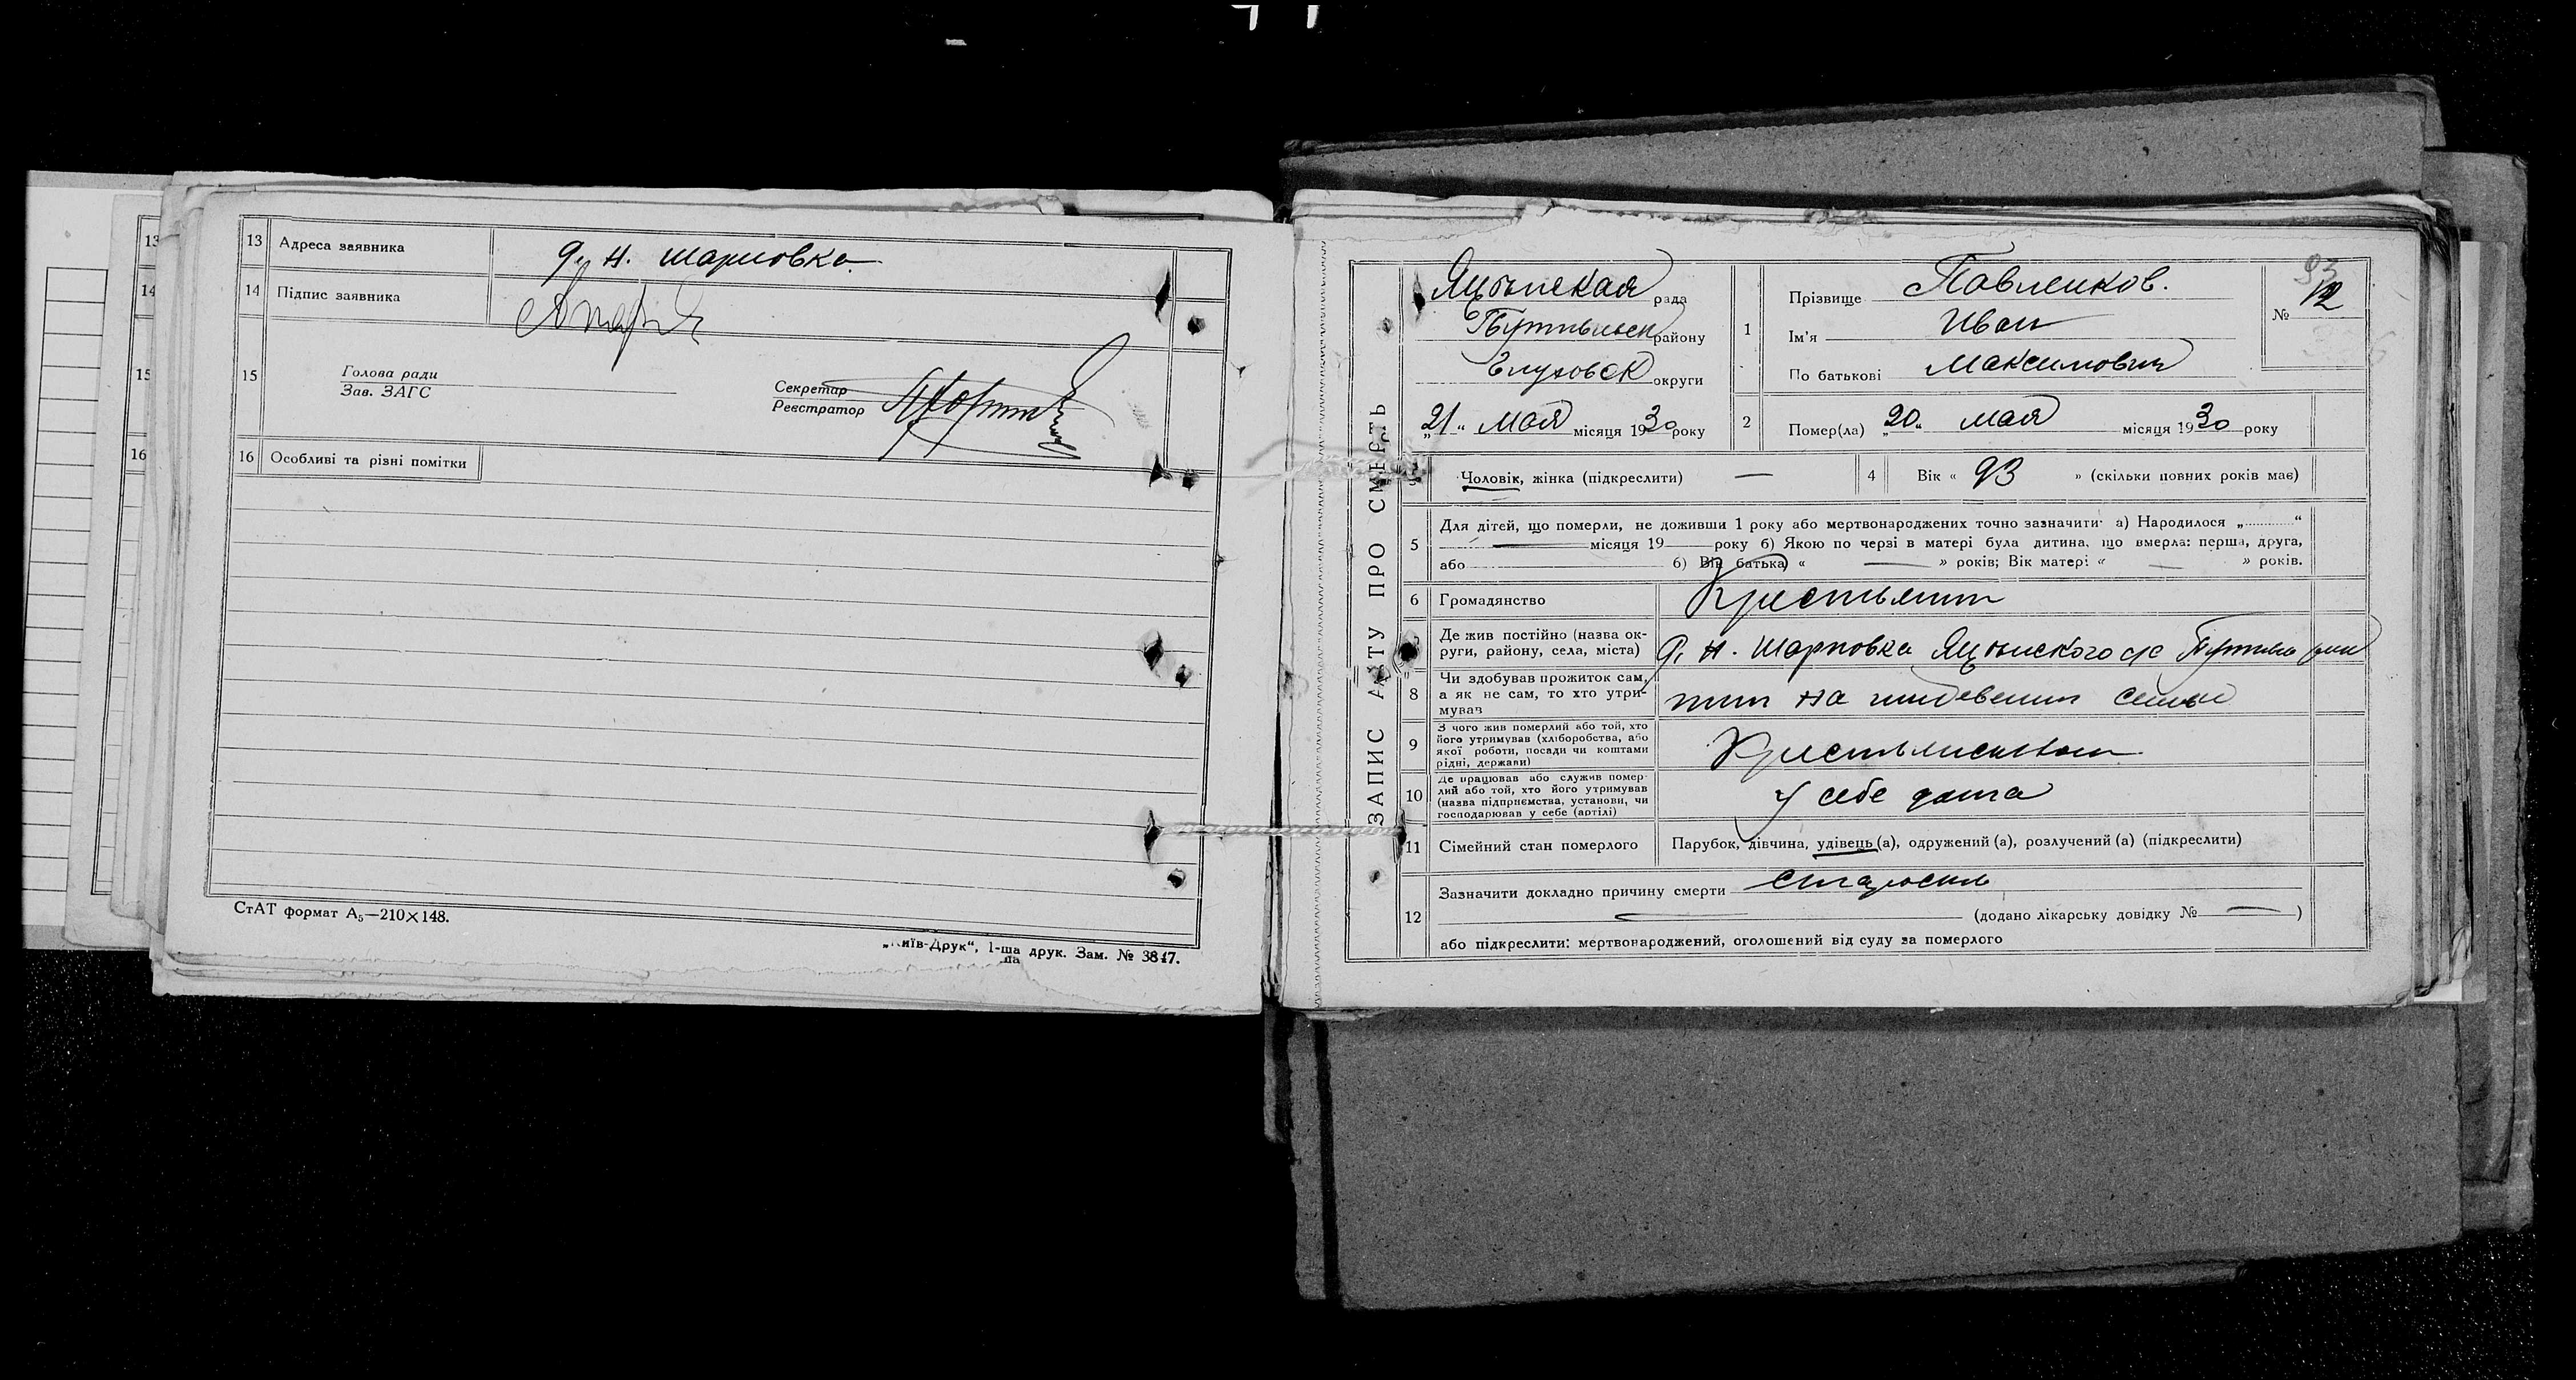 13 Адреса заявника д. Н. Шарповка
14 Підпис заявника
15 Голова ради
Зав. ЗАГС
Секретар
Реєстратор
16 Особливі та різні помітки
СтАТ формат А₅—210×148.
„Київ-Друк“, 1-ша друк. Зам. № 3847.
13
14
15
16
ЗАПИС АКТУ ПРО СМЕРТЬ
Яцынская рада
Путивльск району
Глуховск округи
„21“ мая місяця 1930 року
1 Прізвище Павленков.
Ім'я Иван
По батькові Максимович
93
№ 12
2 Помер(ла) „20“ мая місяця 1930 року
3 Чоловік, жінка (підкреслити) —
4 Вік « 93 » (скільки повних років має)
5 Для дітей, що померли, не доживши 1 року або мертвонароджених точно зазначити: а) Народилося „ “
— місяця 19 — року б) Якою по черзі в матері була дитина, що вмерла: перша, друга,
або б) Вік батька « — » років; Вік матері « — » років.
6 Громадянство Крестьянин
7 Де жив постійно (назва округи, району, села, міста) д. Н. Шарповка Яцынского с/с Путивл
8 Чи здобував прожиток сам, а як не сам, то хто утримував на иждевении семьи
9 З чого жив померлий або той, хто його утримував (хліборобства, або якої роботи, посади чи коштами рідні, держави) Крестьянством
10 Де працював або служив померлий або той, хто його утримував (назва підприємства, установи, чи господарював у себе (артілі) У себе дома
11 Сімейний стан померлого Парубок, дівчина, удівець (а), одружений (а), розлучений (а) (підкреслити)
12 Зазначити докладно причину смерти старость
— (додано лікарську довідку № — )
або підкреслити: мертвонароджений, оголошений від суду за померлого